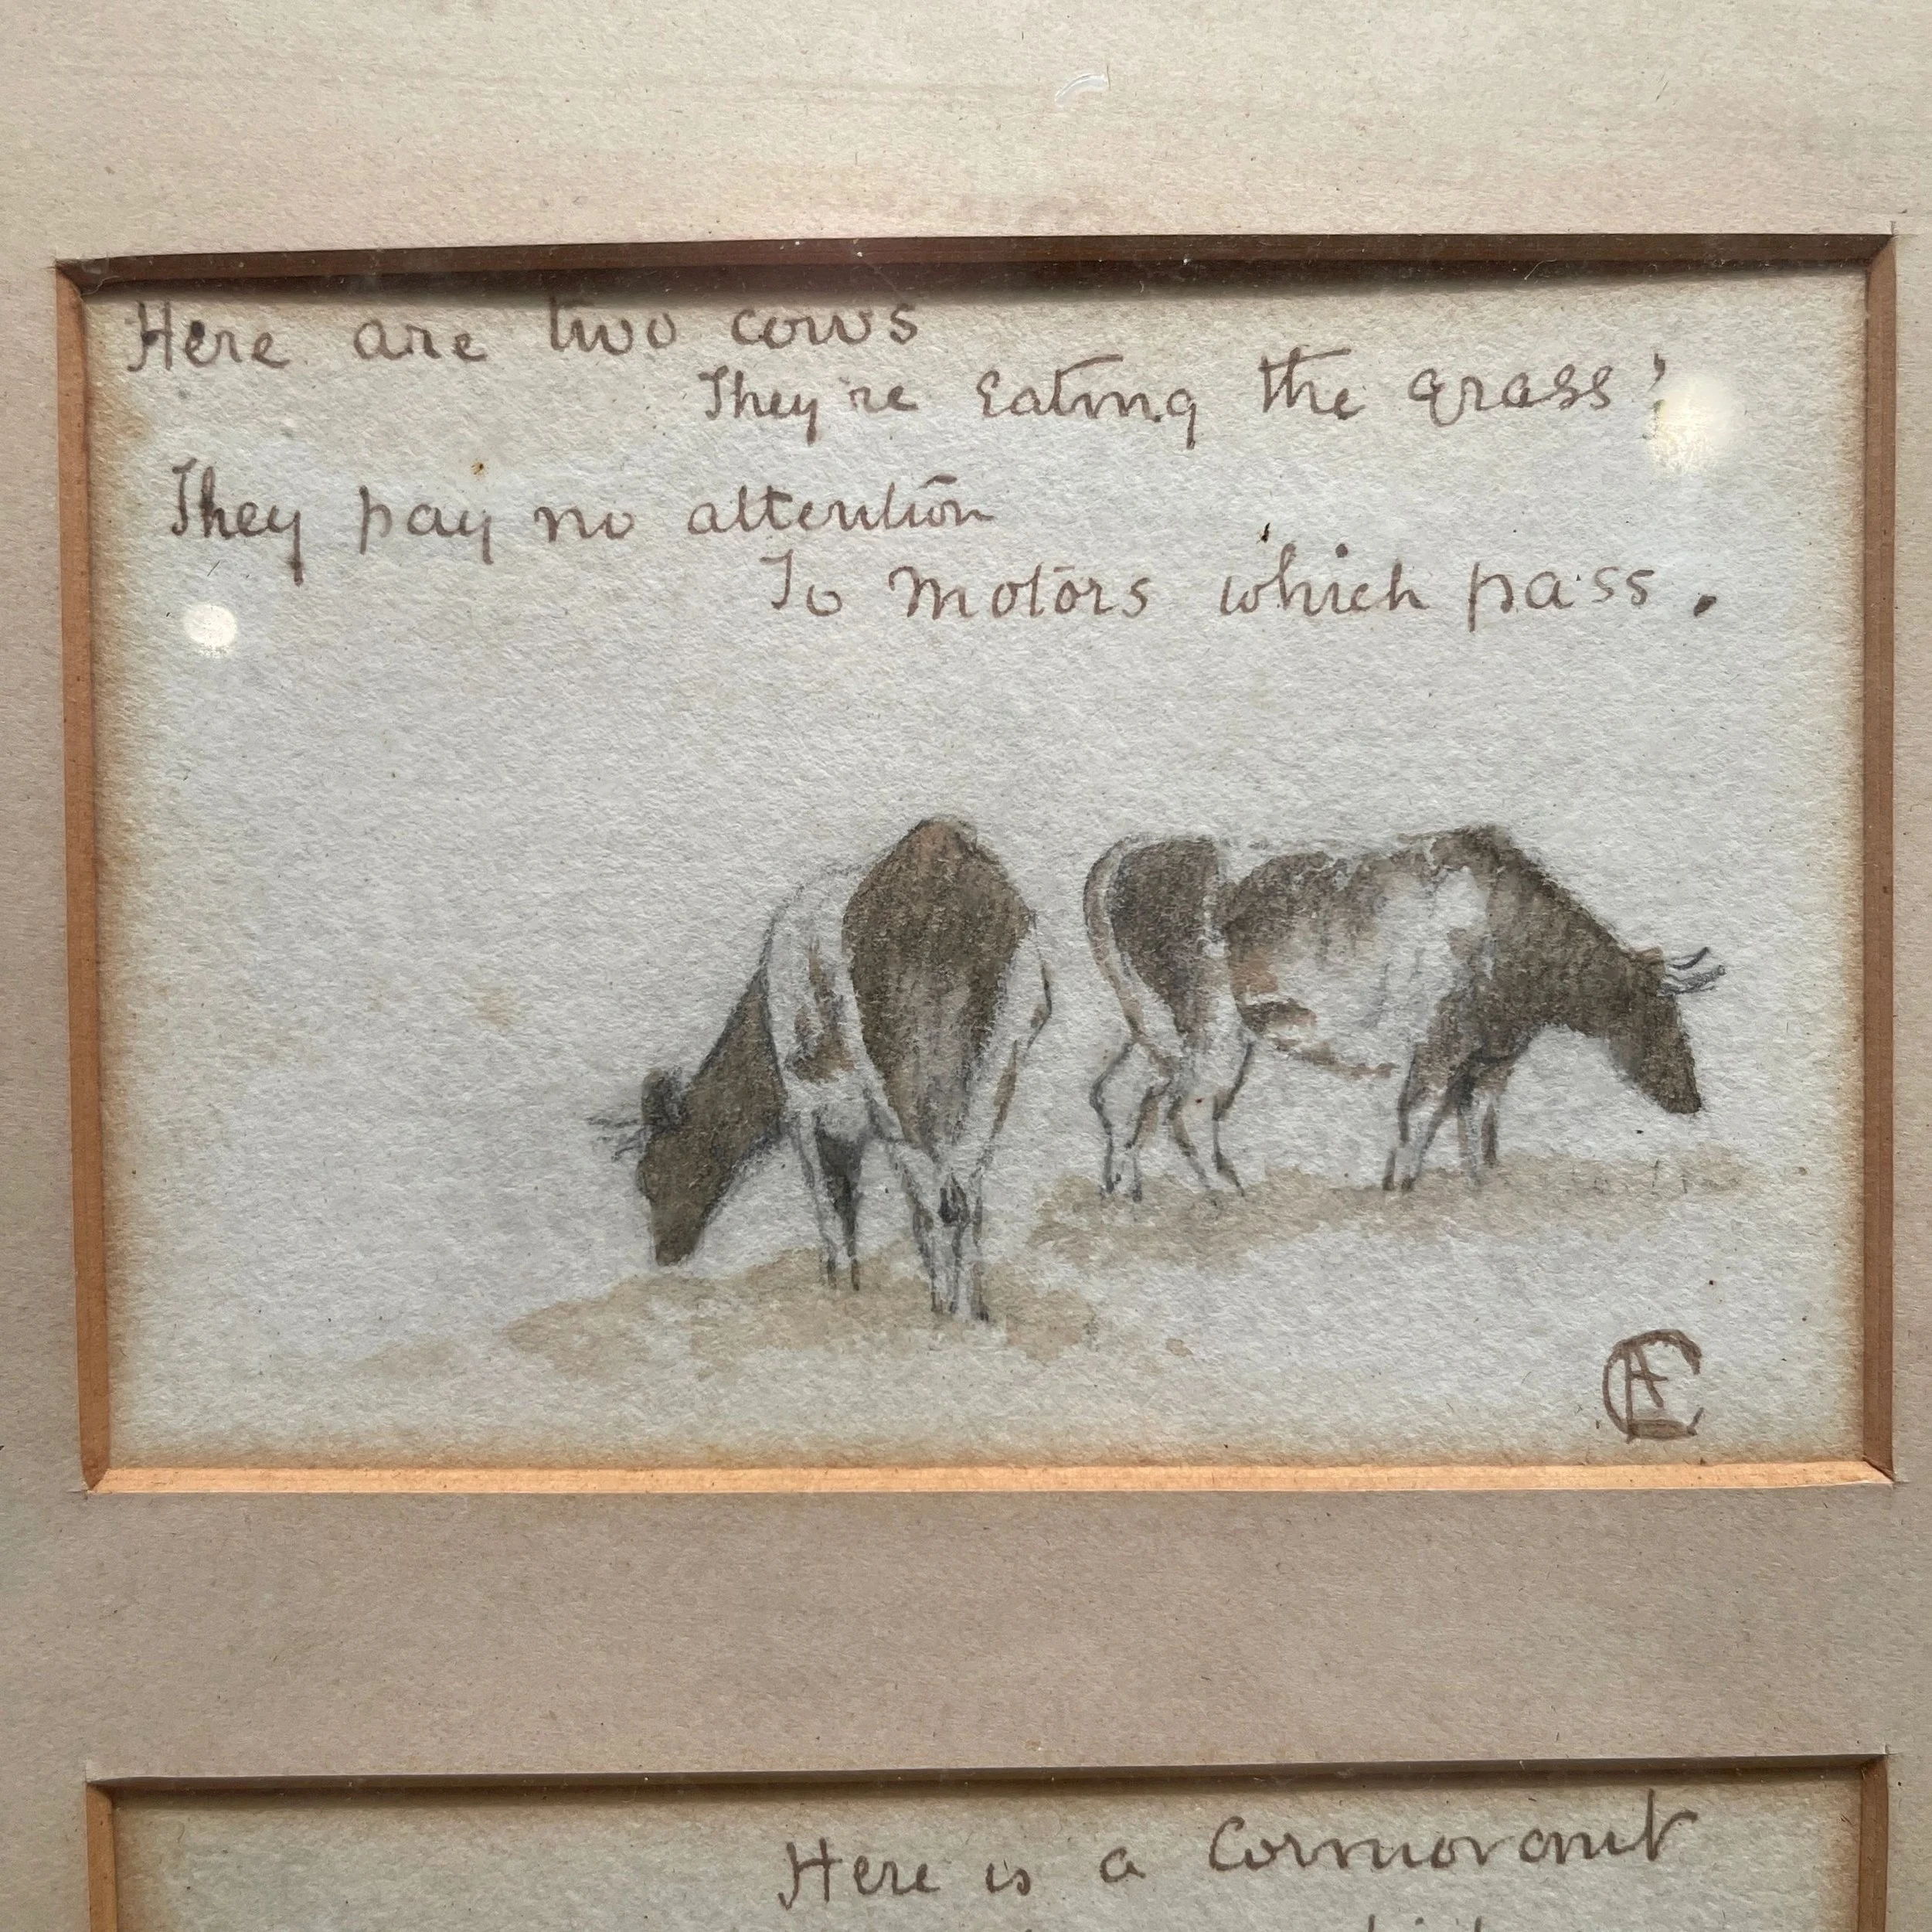 Here are two cows
They're eating the grass;
They pay no attention
To motors which pass.
Here is a Cormorant